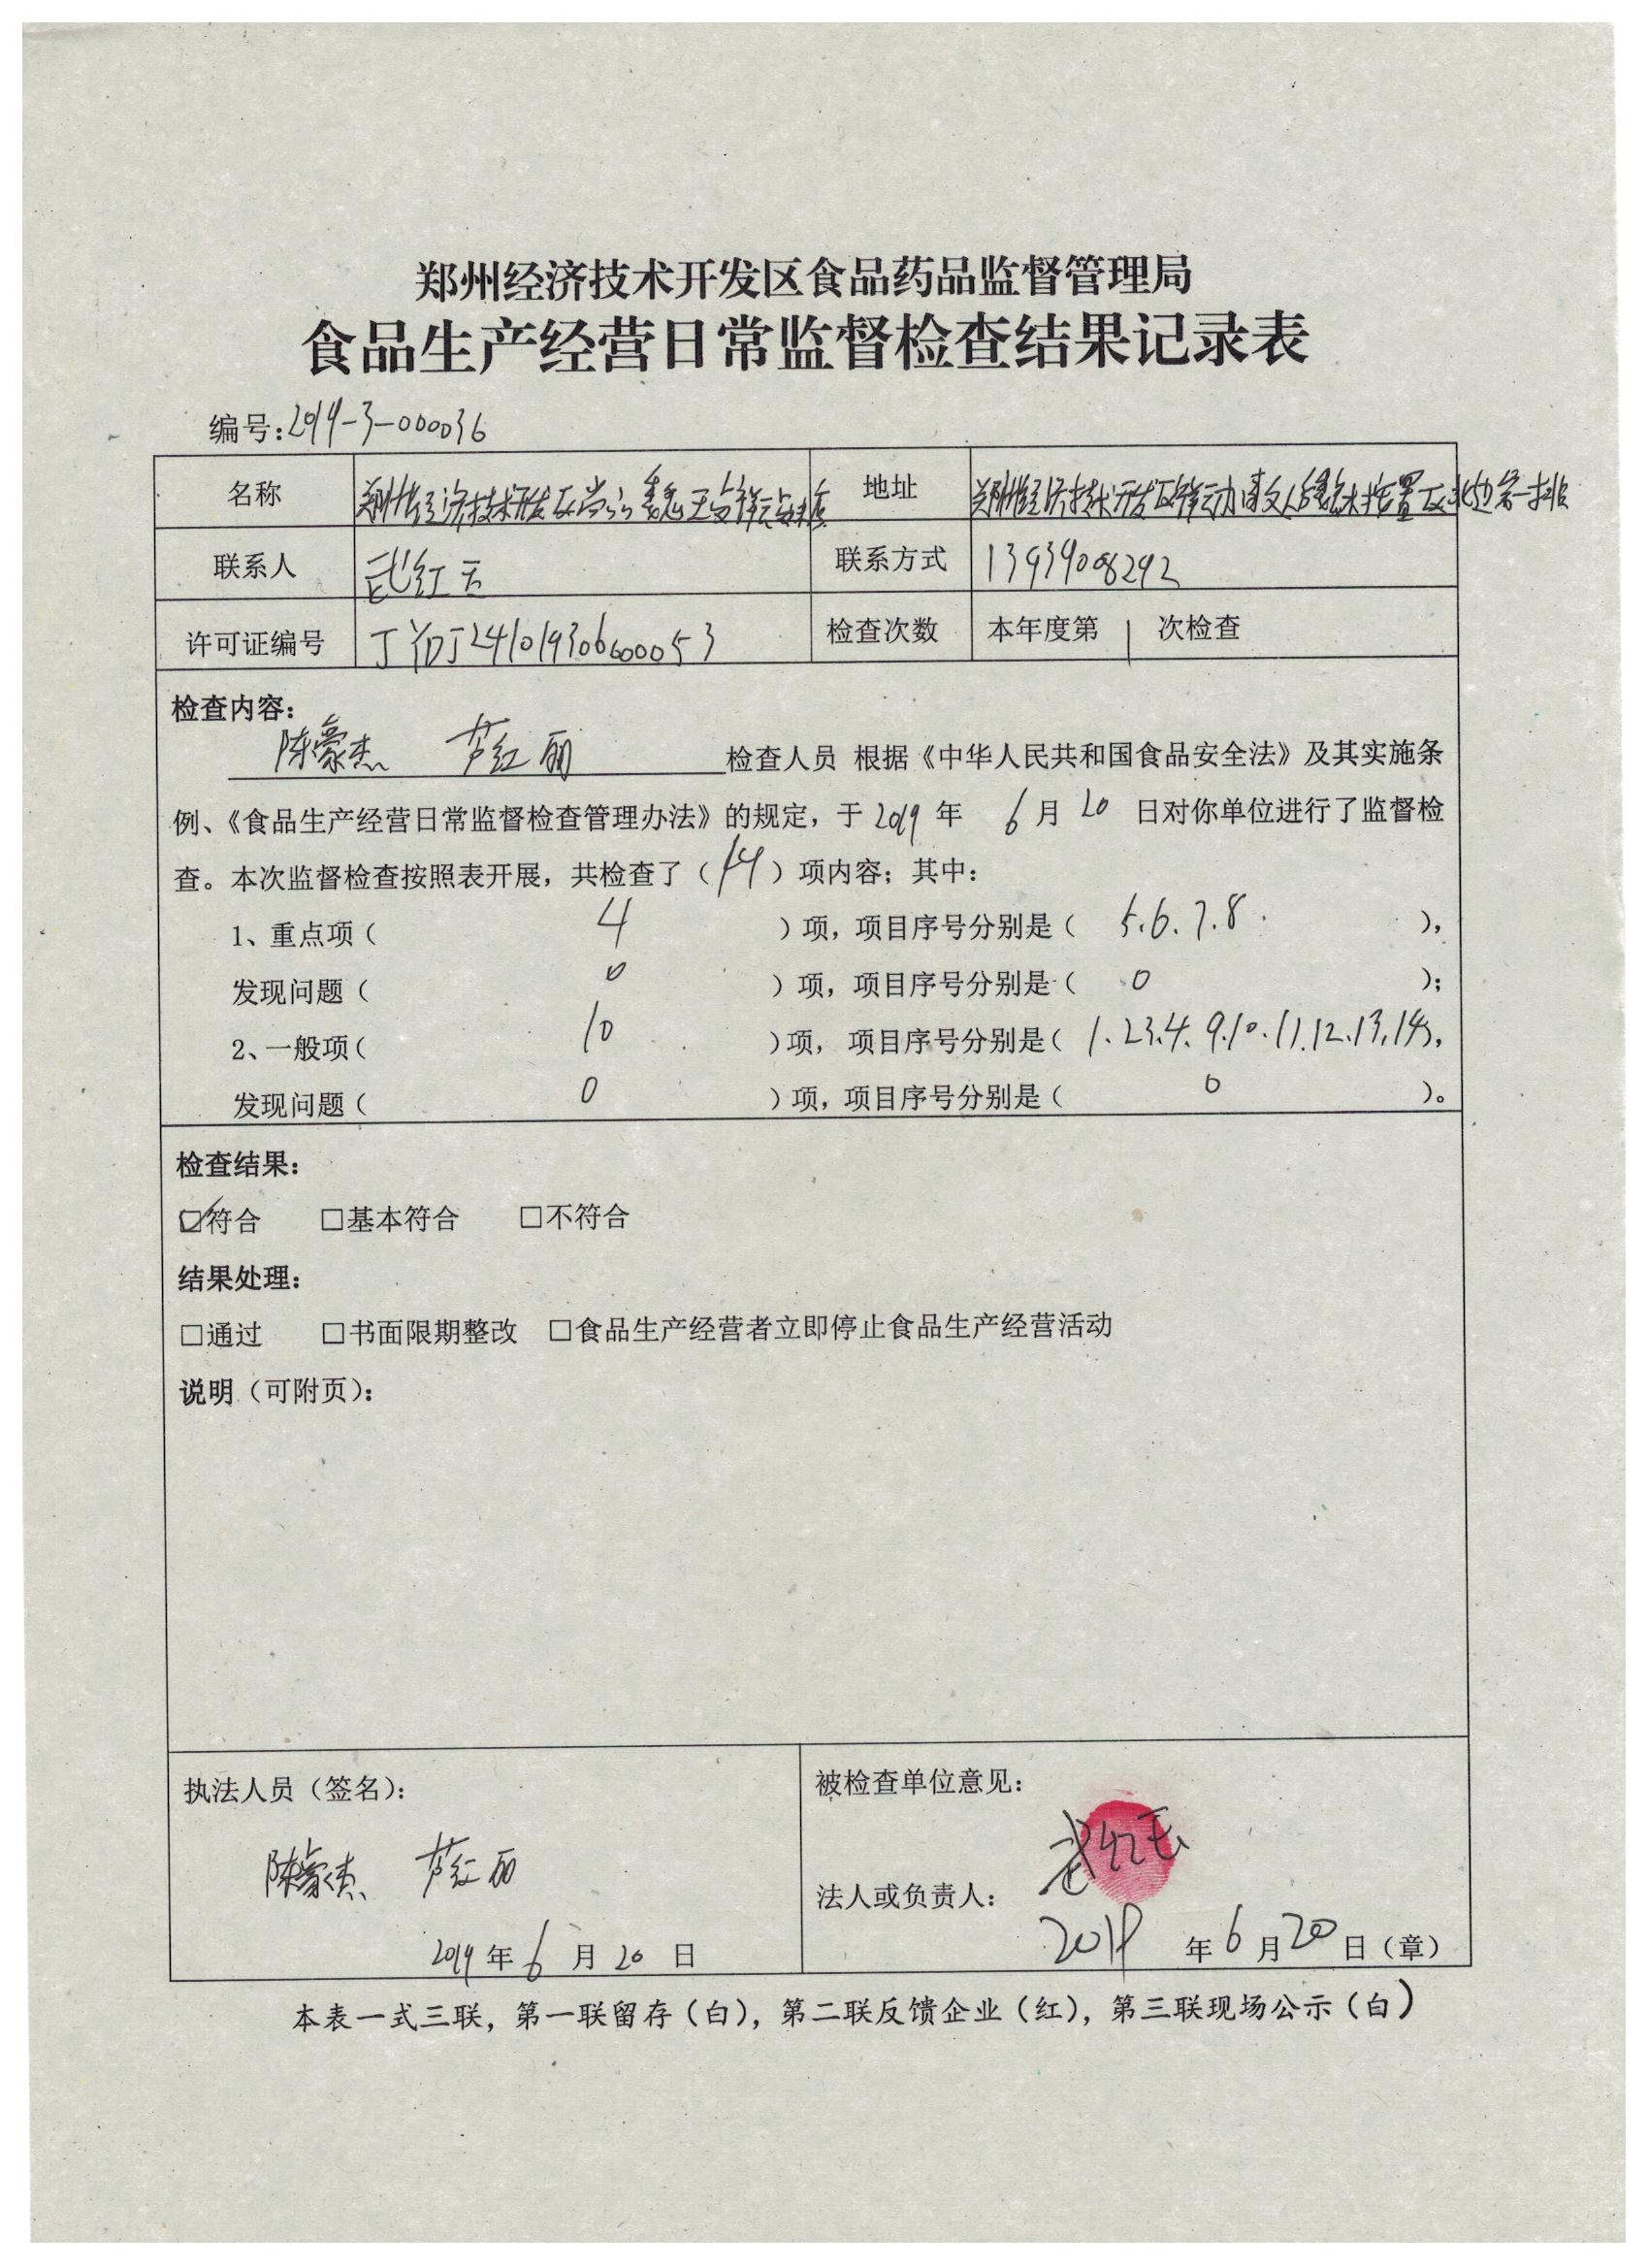 郑州经济技术开发区食品药品监督管理局
食品生产经营日常监督检查结果记录表
编号:2019-3-000036
名称 郑州经济技术开发区 地址 郑州经济技术开发区 安置区北边第一排
联系人 武红玉 联系方式 13939008292
许可证编号 JYDJ24101930600053 检查次数 本年度第 1 次检查
检查内容:
陈豪杰 芦红丽 检查人员 根据《中华人民共和国食品安全法》及其实施条
例、《食品生产经营日常监督检查管理办法》的规定，于2019年 6月20 日对你单位进行了监督检
查。本次监督检查按照表开展，共检查了（14）项内容；其中:
1、重点项（ 4 ）项，项目序号分别是（ 5.6.7.8. ），
发现问题（ 0 ）项，项目序号分别是（ 0 ）；
2、一般项（ 10 ）项，项目序号分别是（ 1.2.3.4.9.10.11.12.13.14），
发现问题（ 0 ）项，项目序号分别是（ 0 ）。
检查结果:
☑符合 □基本符合 □不符合
结果处理:
□通过 □书面限期整改 □食品生产经营者立即停止食品生产经营活动
说明（可附页）:
执法人员（签名）: 被检查单位意见:
陈豪杰 芦红丽
法人或负责人: 武红玉
2019年6月20日 2019年6月20日（章）
本表一式三联，第一联留存（白），第二联反馈企业（红），第三联现场公示（白）